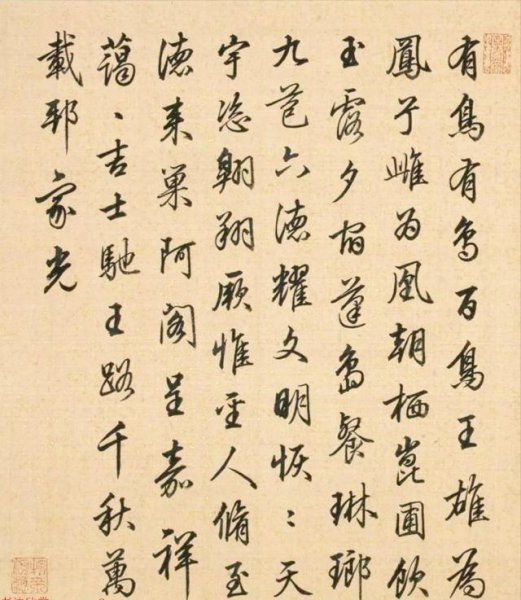 有鳥有鳥百鳥王雄為
鳳兮雌为凰朝栖崑圃飲
玉露夕宿蓬島餐琳瑯
九苞六德耀文明恢〻天
宇恣翱翔厥惟聖人脩至
德来巢阿阁呈嘉祥
藹〻吉士馳王路千秋萬
載邦家光